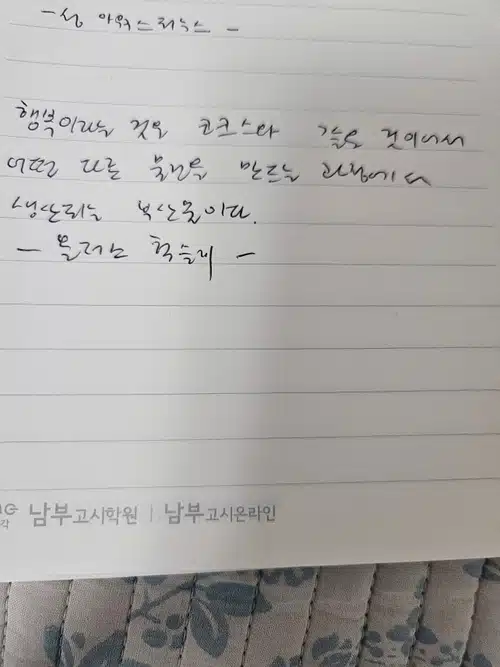 - 성 아우스티누스 -
행복이라는 것은 코크스와 같은 것이어서
어떤 다른 물건을 만드는 과정에서
생산되는 부산물이다.
- 올더스 헉슬리 -
각 남부고시학원 | 남부고시온라인